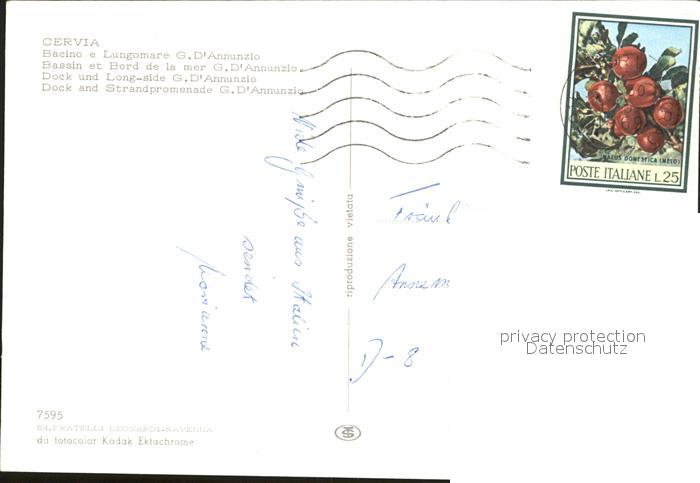 CERVIA
Bacino e Lungomare G.D'Annunzio
Bassin et Bord de la mer G.D'Annunzio
Dock und Long-side G.D'Annunzio
Dock and Strandpromenade G.D'Annunzio
MALUS DOMESTICA (MELO)
POSTE ITALIANE L.25
Viele Grüße aus Italien
sendet
Marianne
riproduzione vietata
Fräul
Annem
D-8
privacy protection
Datenschutz
7595
Ed.FRATELLI LEONARDI-RAVENNA
da fotocolor Kodak Ektachrome